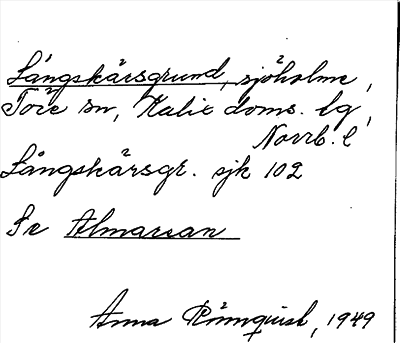 Långskärsgrund, sjöholme,
Töre sn, Kalix doms. lg,
Norrb. l
Långskärsgr. sjk 102
Se Almarean
Anna Rönnquist, 1949